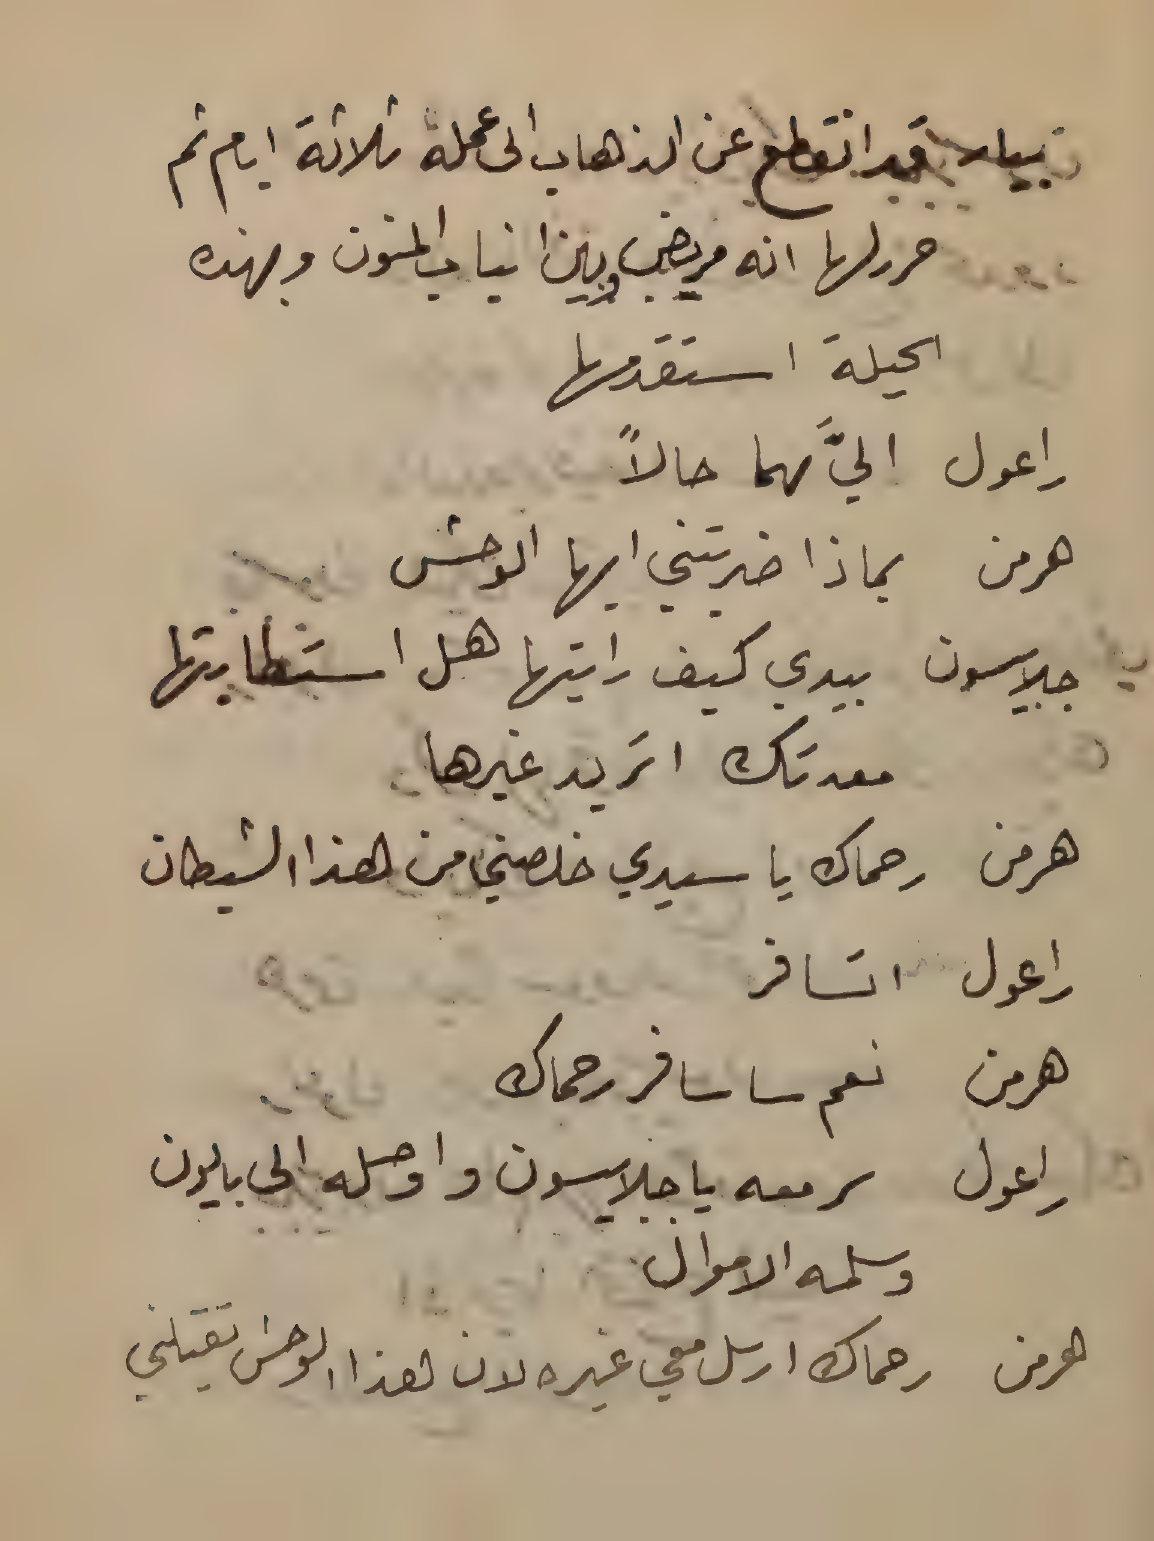 قد انقطع عن الذهاب الى عمله ثلاثة ايام ثم
حرر لها انه مريض وبين انياب المنون وبهذه
الحيلة استقدمها
راعول اليَّ بهما حالاً
هرمن بماذا ضربتني ايها الوحش
جلاسون بيدي كيف رايتها هل استطابتها
معدتك اتريد غيرها
هرمن رحماك يا سيدي خلصني من هذا الشيطان
راعول اتسافر
هرمن نعم ساسافر رحماك
راعول سر معه يا جلاسون واوصله الى بايون
وسلمه الاموال
هرمن رحماك ارسل معي غيره لان هذا الوحش يقتلني